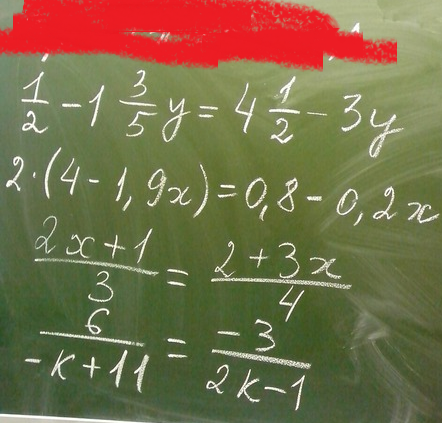 1/2 - 1 3/5 y = 4 1/2 - 3y
2·(4 - 1,9x) = 0,8 - 0,2x
(2x+1)/3 = (2+3x)/4
6/(-k+11) = -3/(2k-1)